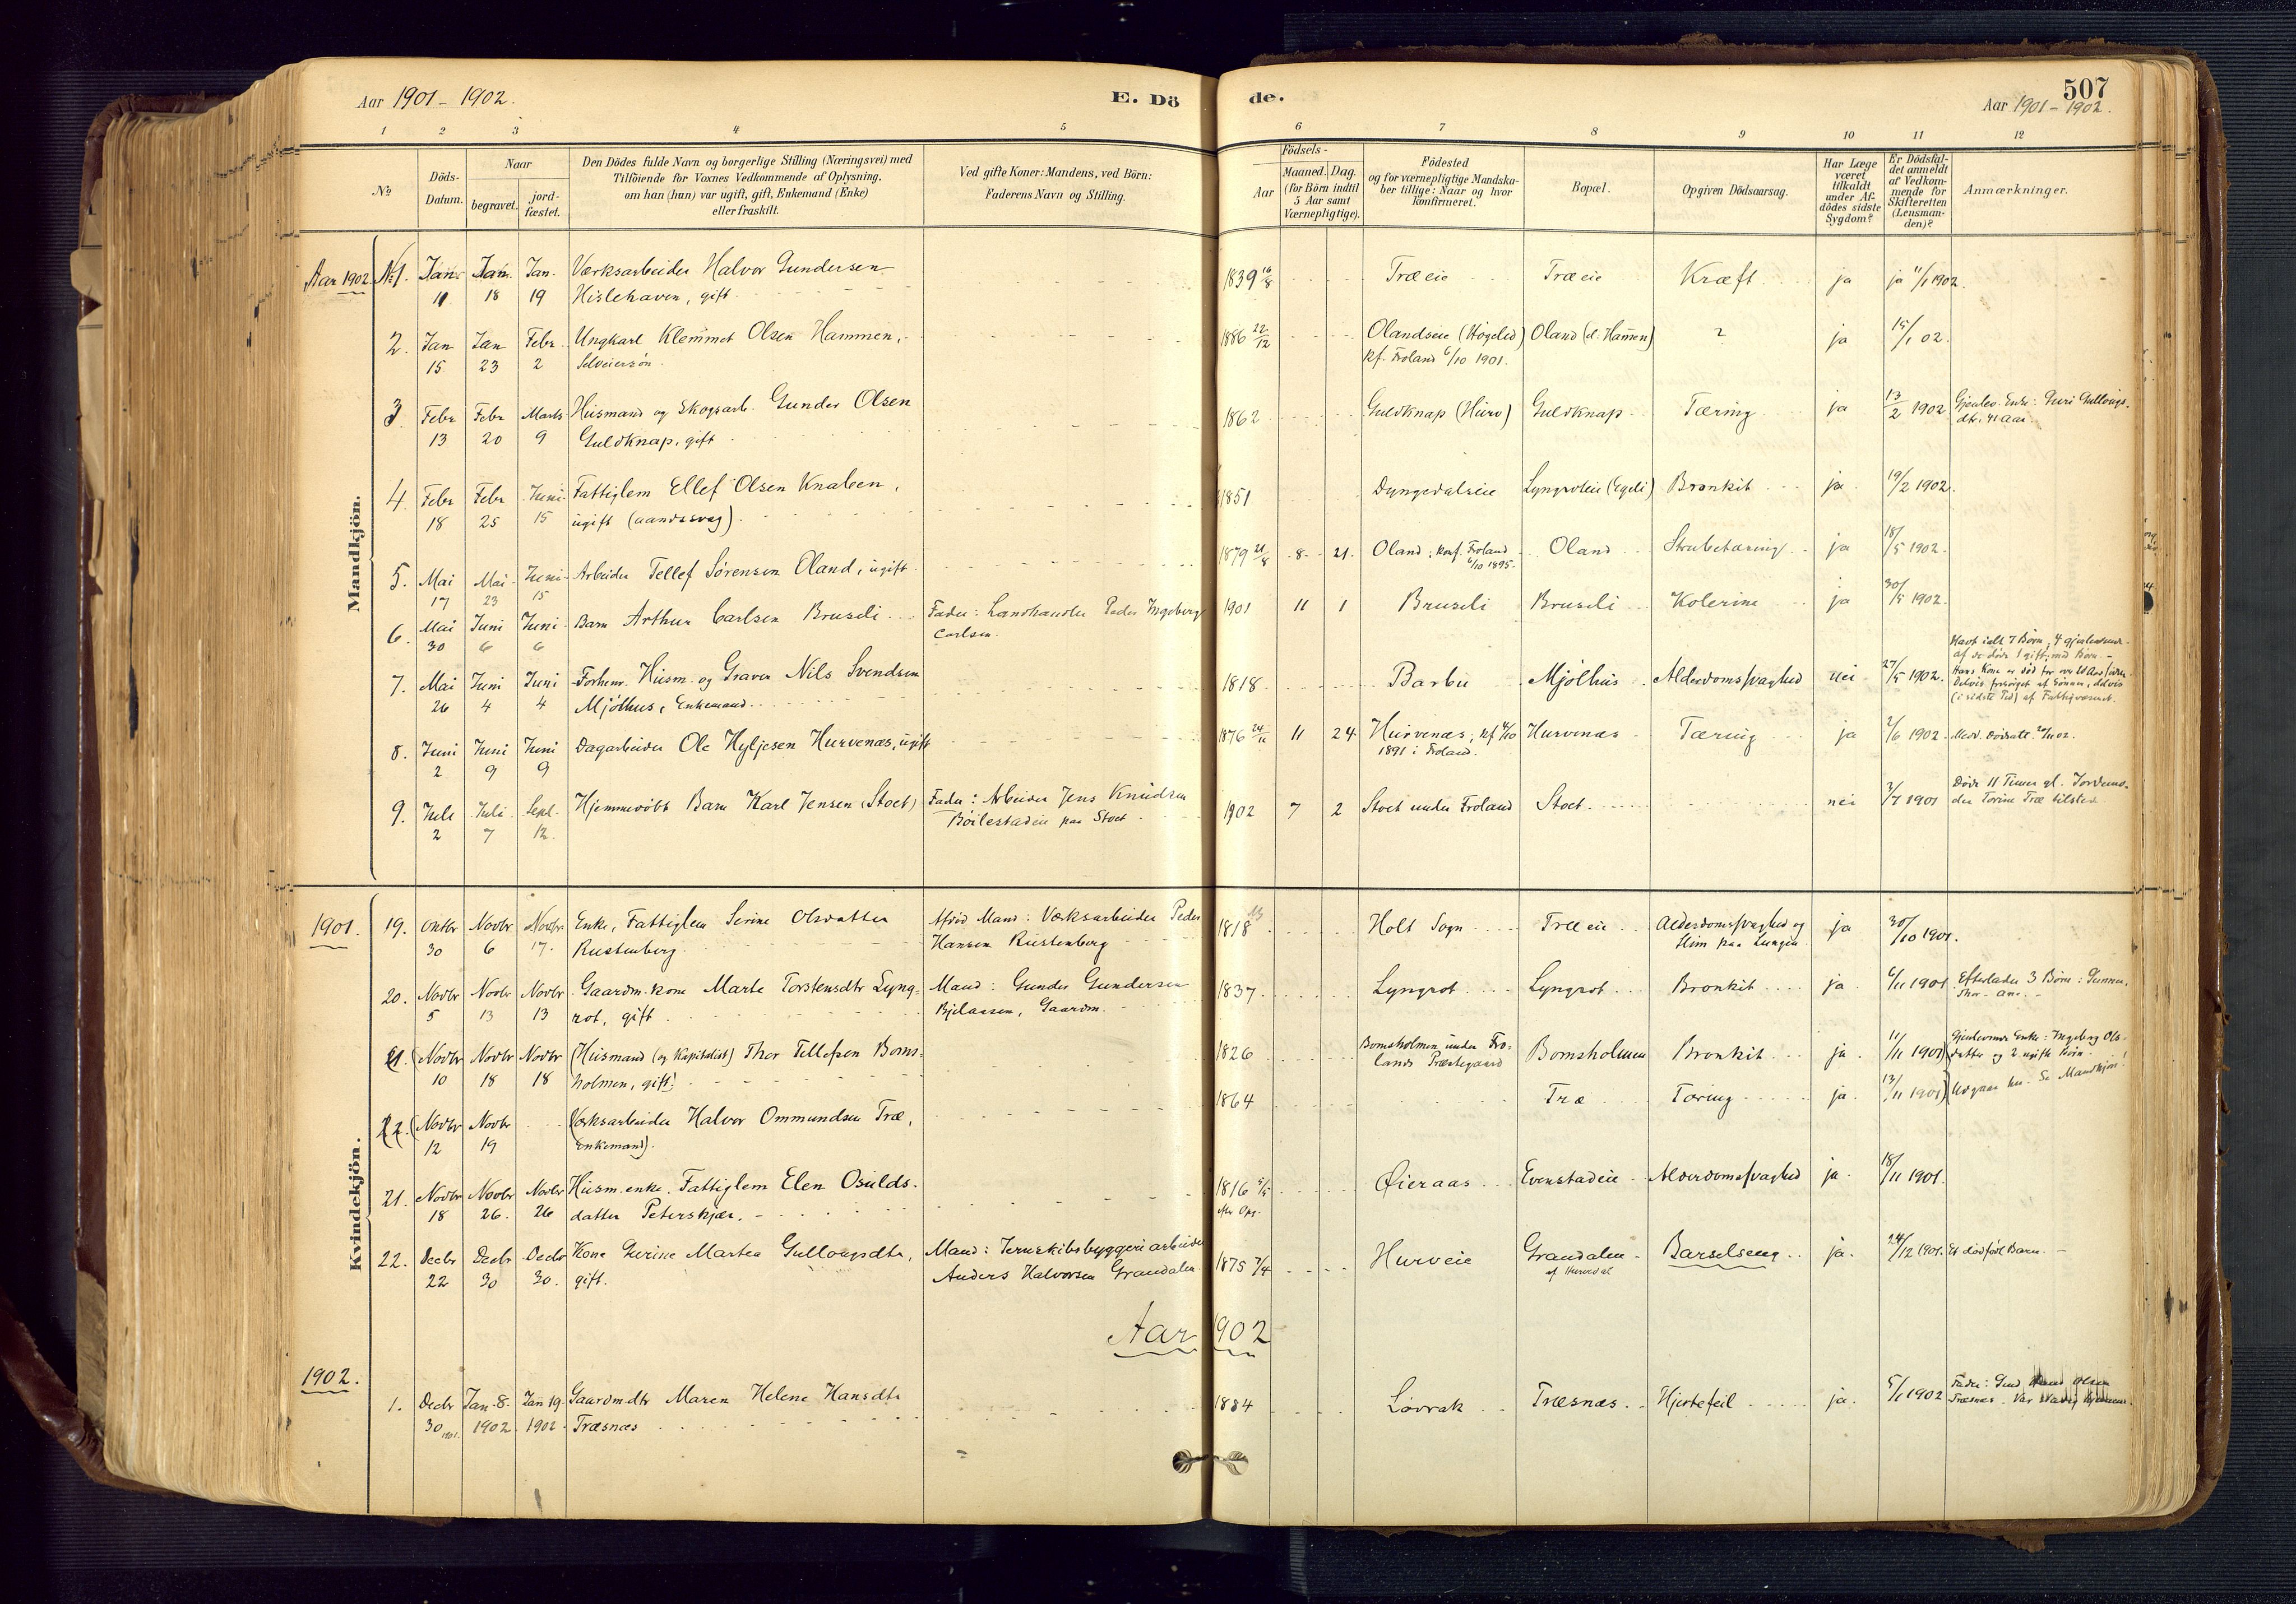 Aar 1901 - 1902.
E. Dö
de.
507
Aar 1901 - 1902.
1 2 3 4 5 6 7 8 9 10 11 12
No
Döds-Datum.
Naar
begravet.
jordfæstet.
Den Dödes fulde Navn og borgerlige Stilling (Næringsvei) med
Tilföiende for Voxnes Vedkommende af Oplysning,
om han (hun) var ugift, gift, Enkemand (Enke)
eller fraskilt.
Ved gifte Koner: Mandens, ved Börn:
Faderens Navn og Stilling.
Födsels-
Aar
Maaned. Dag.
(for Börn indtil
5 Aar samt
Værnepligtige).
Födested
og for værnepligtige Mandska-
ber tillige: Naar og hvor
konfirmeret.
Bopæl.
Opgiven Dödsaarsag.
Har Læge
været
tilkaldt
under Af-
dödes sidste
Sygdom?
Er Dödsfal-
det anmeldt
af Vedkom-
mende for
Skifteretten
(Lensman-
den)?
Anmærkninger.
Mandkjön.
Aar 1902 No 1. Jan. Jan. Jan. Værksarbeider Halvor Gundersen 1839 16/8 Træeie Træeie Kræft ja ja 11/1 1902.
11 18 19 Hislehaven, gift
2. Jan Jan Febr. Ungkarl Klemmet Olsen Hammen, 1886 22/12 Olandseie (Högelid) Oland (el. Hammen) ? ja 15/1 02.
15 23 2 Selveiersøn. kf. Froland 6/10 1901.
3. Febr Febr Marts Husmand og Skogsarb. Gunder Olsen 1862 Guldknap (Hurv) Guldknap Tæring ja 13/2 1902 Gjenlev. Enke: Guri Gullougs-
13 20 9 Guldknap, gift dtr. 41 Aar.
4. Febr Febr Juni Fattiglem Ellef Olsen Knaben, 1851 Dyngedalseie Lyngroteie (Egeli) Bronkit ja 19/2 1902.
18 25 15 ugift (aandssvag).
5. Mai Mai Juni Arbeider Tellef Sörensen Oland, ugift 1879 21/8 8 21. Oland, konf. Froland Oland Strubetæring ja 18/5 1902.
17 23 15 6/10 1895.
6. Mai Juni Juni Barn Arthur Carlsen Bruseli Fader: Landhandler Peder Ingeberg 1901 11 1 Bruseli Bruseli Kolerine ja 30/5 1902.
30 6 6 Carlsen.
Havt ialt 7 Børn, 4 gjenlevende
af de døde 1 gift, med Børn. -
7. Mai Juni Juni Forhenv. Husm. og Graver Nils Svendsen 1818 Barbu Mjölhus Alderdomssvaghed nei 27/5 1902. Hans Kone er död for
26 4 4 Mjölhus, Enkemand (i sidste Tid) af Fattigvæsenet.
8. Juni Juni Juni Dagarbeider Ole Hyljesen Hurvenæs, ugift 1876 24/11 11 24 Hurvenæs, kf. 4/10 Hurvenæs Tæring ja 2/6 1902
2 9 9 1891 i Froland.
9. Juli Juli Sept. Hjemmedöbt Barn Karl Jensen (Stoet) Fader: Arbeider Jens Knudsen 1902 7 2 Stoet under Froland Stoet nei 3/7 1901 Døde 11 Timer gl. Jordemo-
2 7 12. Böilestadeie paa Stoet der Torine Træ tilsted
Kvindekjön.
1901. 19. Oktbr Novbr. Novbr Enke, Fattiglem Serine Olsdatter Afdöd Mand: Værksarbeider Peder 1818 Holt Sogn Træeie Alderdomssvaghed og ja 30/10 1901.
30 6 17. Rustenberg Hansen Rustenberg Slim paa Lungen
20. Novbr Novbr Novbr Gaardm. kone Marte Torstensdtr Lyng- Mand: Gunder Gundersen 1837 Lyngrot Lyngrot Bronkit ja 6/11 1901 Efterlader 3 Børn: Gunner,
5 13 13 rot, gift Bjelaasen, Gaardm.
21. (Novbr Novbr Novbr (Husmand (og Kapitalist) Thor Tellefsen Boms- 1826 Bomsholmen under Fro- Bomsholmen Bronkit ja 11/11 1901 Gjenlevende Enke: Ingeborg Ols-
10 18 18 holmen, gift! lands Præstegaard datter og 2 ugifte Børn.
22. (Novbr Novbr Værksarbeider Halvor Ommundsen Træ, 1864 Træ Tæring ja 13/11 1901) Udgaar her. Se Mandkjön!
12 19 Enkemand).
21. Novbr Novbr Novbr Husm. enke. Fattiglem Elen Osulds- 1816 5/5 Øieraas Evenstadeie Alderdomssvaghed ja. 18/11 1901.
18 26. 26 datter Peterskjær. efter Opg.
22. Decbr Decbr Decbr Kone Gurine Martea Gullougsdtr, Mand: Jernskibsbyggeri arbeider 1875 7/4 Hurveie Grandalen Barselseng ja. 24/12 1901. Et dødfödt Barn. -
22 30 30. gift. Anders Halvorsen Grandalen af Hurvedal
Aar 1902
1902.
1. Decbr Jan. 8. Jan 19. Gaardmdtr Maren Helene Hansdtr 1884 Lövrak Træsnæs Hjertefeil ja. 5/1 1902 Fader: Olsen
30 1901. 1902 1902 Træsnæs Træsnæs. Var